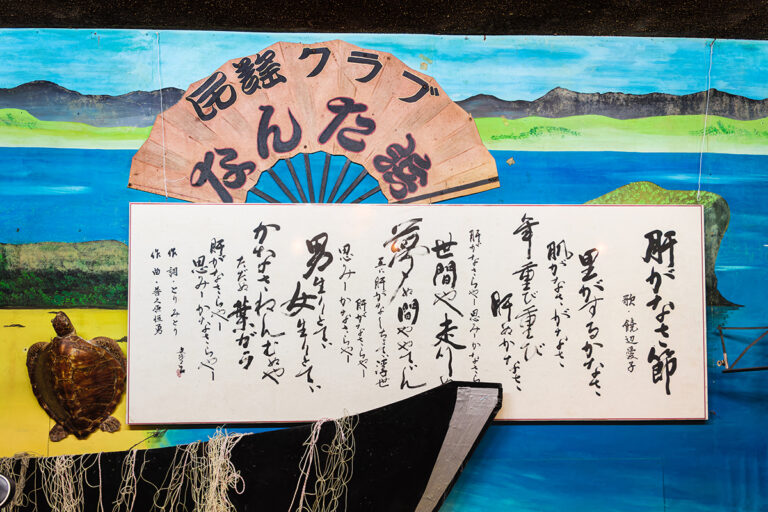 民謡クラブ
なんた浜
肝がなさ節
歌・饒辺愛子
里がするかなさ
肌がなさがなさ
年重び重び
肝ぬかなさ
肝がなさらやー思みかなさら
世間や走り
夢ぬ間ややてぃん
肝がなさらやー
思みーかなさらやー
男生りてぃ
女生りてぃ
かなさねんむぬや
ただぬ葉がら
肝がなさらやー
思みーかなさらやー
作詞・とりみどり
作曲・普久原恒勇